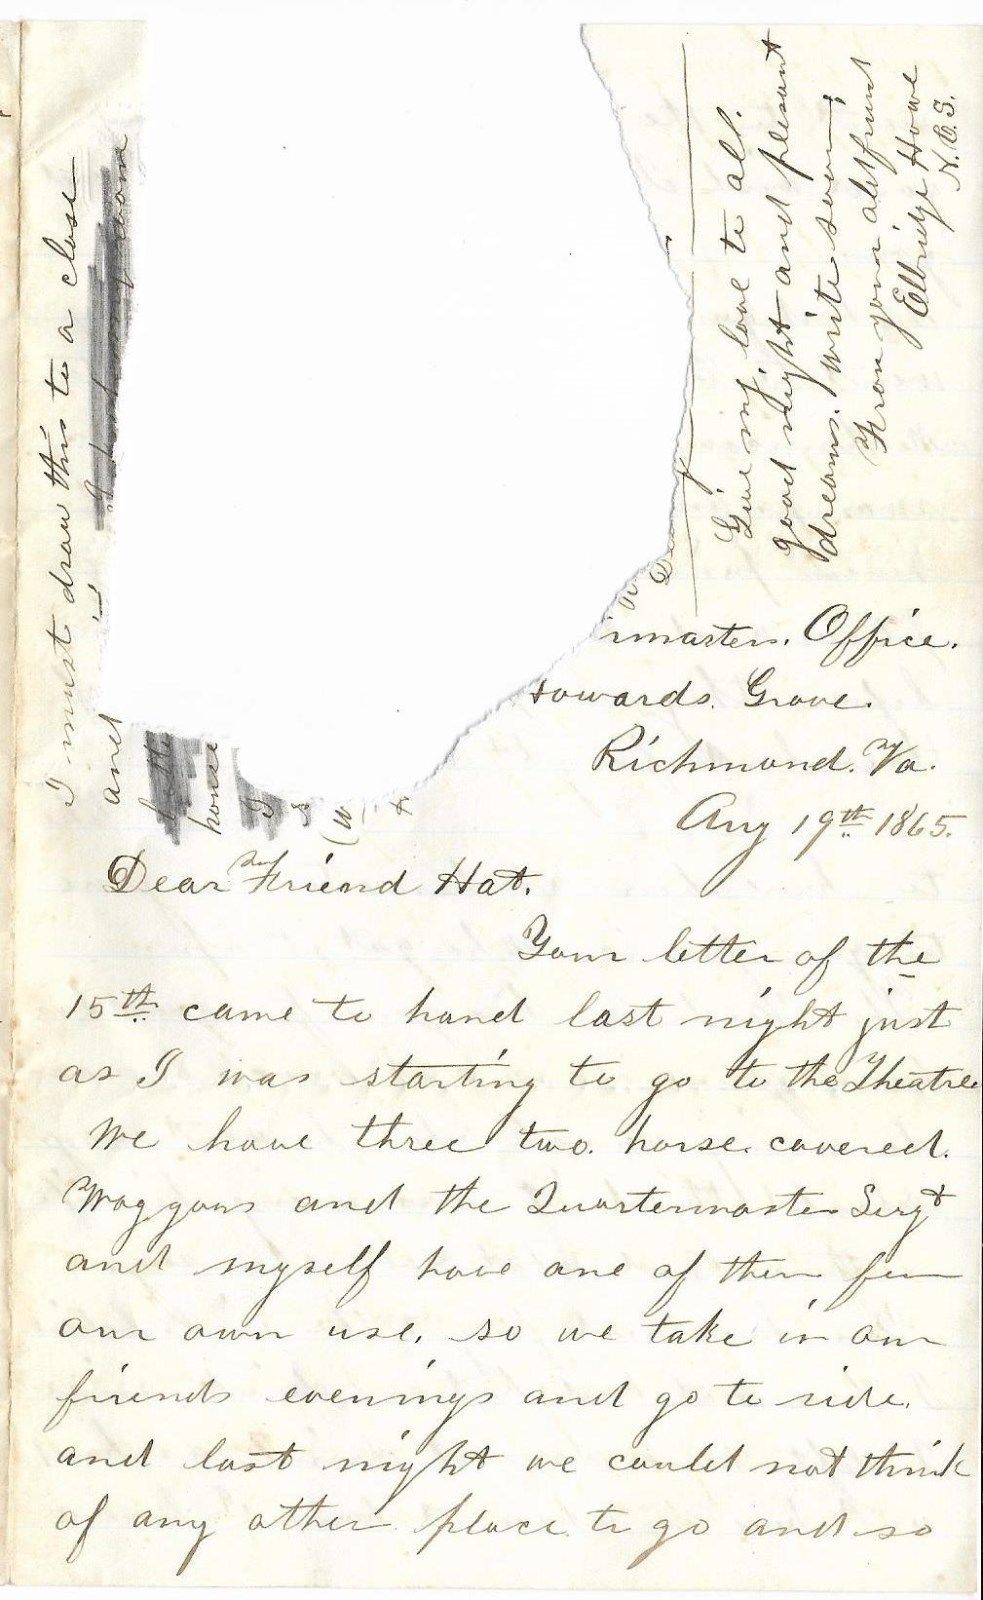 rmasters. Office.
Howards. Grove.
Richmond. Va.
Aug 19th 1865.
Dear Friend Hat.
Your letter of the
15th came to hand last night just
as I was starting to go to the Theatre
We have three two. horse. covered.
Waggons and the Quartermaster Sergt
and myself have one of them for
our own use. so we take in our
friends evenings and go to ride.
and last night we could not think
of any other place to go and so
I must draw this to a close
and
house
I
Give my love to all.
good night and plesant
dreams. write soon;
From your abst friend
Elbridge Howe
N.C.S.